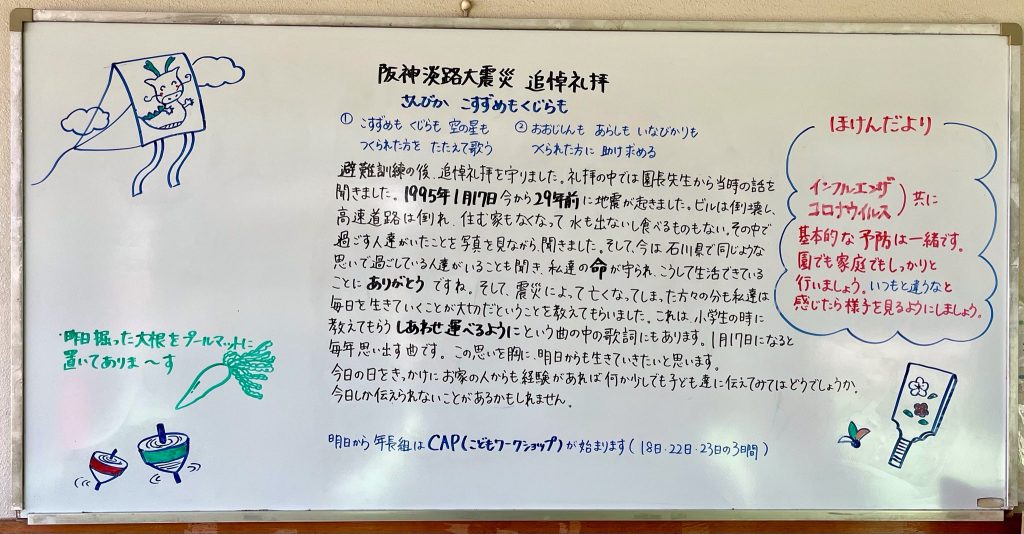 阪神淡路大震災 追悼礼拝
さんびか こすずめもくじらも
① こすずめも くじらも 空の星も
つくられた方を たたえて歌う
② おおじしんも あらしも いなびかりも
つくられた方に 助け求める
避難訓練の後、追悼礼拝を守りました。礼拝の中では園長先生から当時の話を
聞きました。1995年1月17日今から29年前に地震が起きました。ビルは倒壊し、
高速道路は倒れ、住む家もなくなって 水も出ないし食べるものもない。その中で
過ごす人達がいたことを写真を見ながら、聞きました。そして、今は 石川県で同じような
思いで過ごしている人達がいることも聞き、私達の命が守られ、こうして生活できている
ことに ありがとう ですね。そして、震災によって亡くなってしまった方々の分も私達は
毎日を生きていくことが大切だということを教えてもらいました。これは、小学生の時に
教えてもらう しあわせ運べるように という曲の中の歌詞にもあります。1月17日になると
毎年思い出す曲です。この思いを胸に、明日からも生きていきたいと思います。
今日の日をきっかけに お家の人からも 経験があれば 何か少しでも子ども達に伝えてみてはどうでしょうか。
今日しか伝えられないことがあるかもしれません。
明日から 年長組は CAP(こどもワークショップ)が始まります(18日・22日・23日の3日間)
ほけんだより
インフルエンザ
コロナウイルス)共に
基本的な予防は一緒です。
園でも家庭でもしっかりと
行いましょう。いつもと違うなと
感じたら様子を見るようにしましょう。
・昨日掘った大根をプールマットに
置いてありま〜す